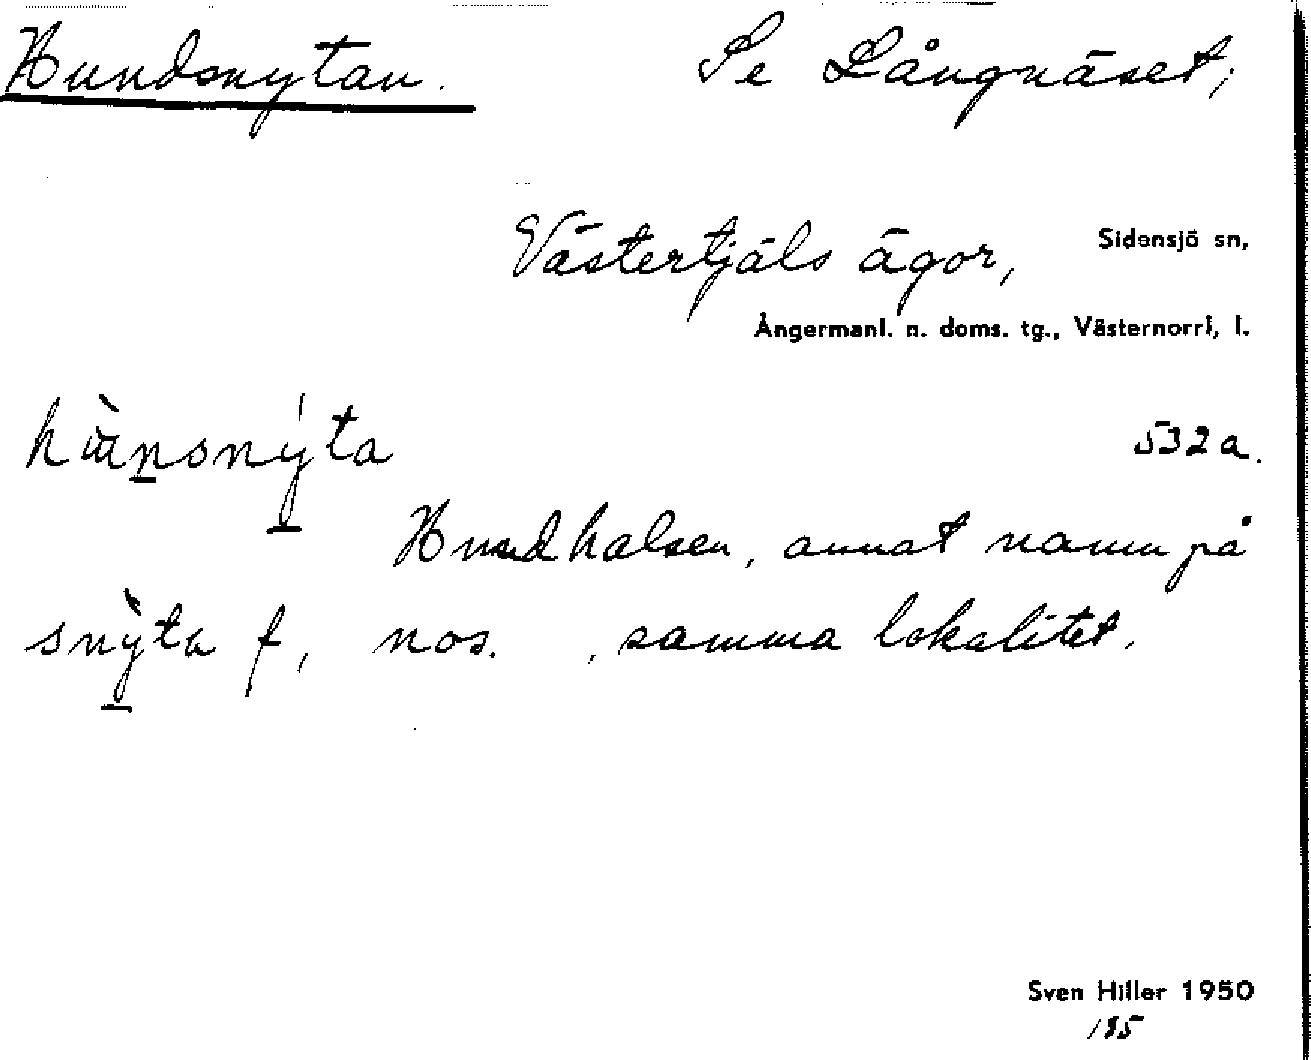 Hundsnytan. Se Långnäset;
Västertjäls ägor, Sidensjö sn,
Ångermanl. n. doms. tg., Västernorrl, l.
532a.
Hundhalsen, annat namn på
snỳta f, nos. , samma lokalitet.
Sven Hiller 1950
185